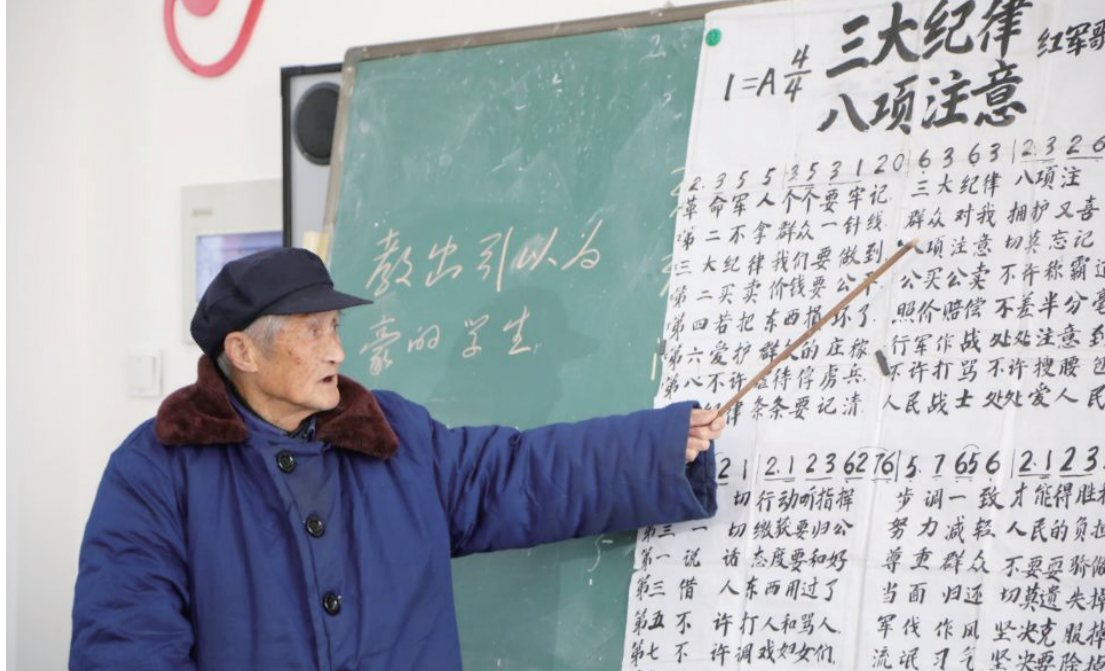 教出引以为
豪的学生
1=A 4/4
三大纪律 红军歌
八项注意
2. 3 5 5 3 5 3 1 2 0 6 3 6 3 2. 3 2 6
革命军人个个要牢记 三大纪律 八项注
第二不拿群众一针线 群众对我 拥护又喜
三大纪律我们要做到 八项注意 切莫忘记
第二买卖价钱要公平 公买公卖 不许称霸道
第四若把东西损坏了 照价赔偿 不差半分毫
第六爱护群众的庄稼 行军作战 处处注意到
第八不许虐待俘虏兵 不许打骂 不许搜腰包
律条条要记清 人民战士 处处爱人民
2 1 2. 1 2 3 6 2 7 6 5. 7 6 5 6 2. 1 2 3.
切行动听指挥 步调一致 才能得胜
第三一切缴获要归公 努力减轻 人民的负担
第一说话态度要和好 尊重群众 不要耍骄傲
第三借人东西用过了 当面归还 切莫遗失掉
第五不许打人和骂人 军伐作风 坚决克服掉
第七不许调戏妇女们 流氓习气 坚决要除掉